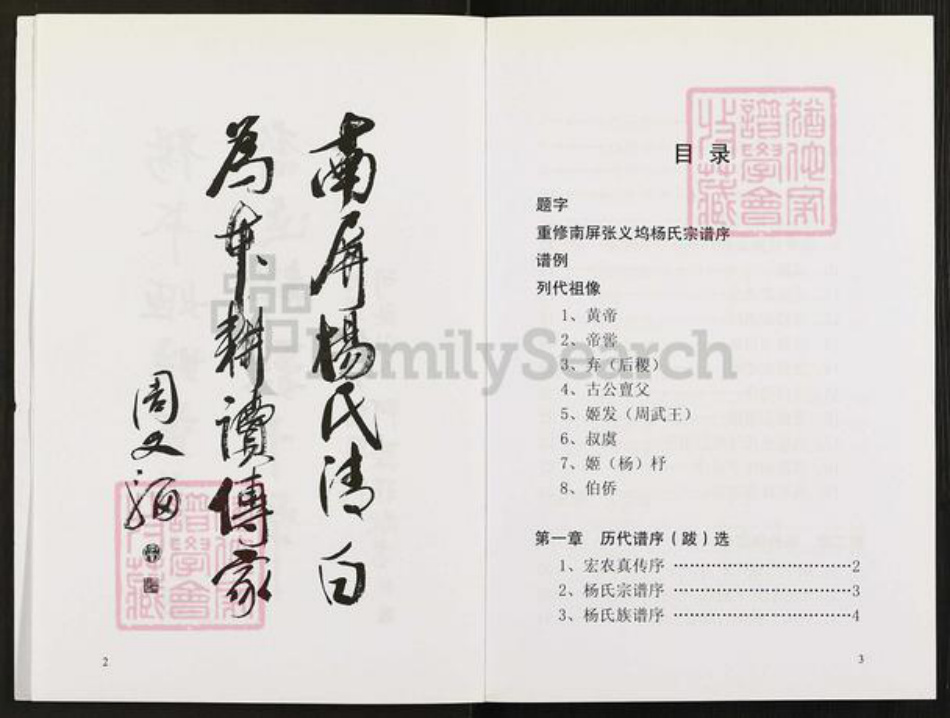 南屏楊氏清白
為本耕讀傳家
周文
2
目 录
题字
重修南屏张义坞杨氏宗谱序
谱例
列代祖像
1、黄帝
2、帝喾
3、弃（后稷）
4、古公亶父
5、姬发（周武王）
6、叔虞
7、姬（杨）杼
8、伯侨
第一章 历代谱序（跋）选
1、宏农真传序 ……………………………2
2、杨氏宗谱序 ……………………………3
3、杨氏族谱序 ……………………………4
3
FamilySearch